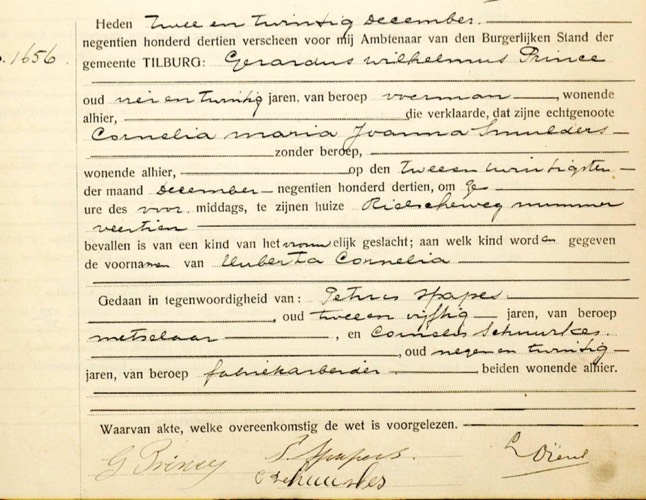 Heden twee en twintig December.
1656. negentien honderd dertien verscheen voor mij Ambtenaar van den Burgerlijken Stand der
gemeente TILBURG: Gerardus Wilhelmus Prince
oud en twintig jaren, van beroep voerman, wonende
alhier, die verklaarde, dat zijne echtgenoote
Cornelia Maria Joanna Smulders
zonder beroep,
wonende alhier, op den tweeentwintigsten
der maand December negentien honderd dertien, om
ure des voor. middags, te zijnen huize Rielscheweg nummer
veertien
bevallen is van een kind van het vrouwelijk geslacht; aan welk kind worden gegeven
de voornamen van Huberta Cornelia
Gedaan in tegenwoordigheid van: Petrus Spapes
, oud tweeen vijftig jaren, van beroep
metselaar, en Cornelis Schuurkes.
, oud negen en twintig
jaren, van beroep fabriekarbeider. beiden wonende alhier.
Waarvan akte, welke overeenkomstig de wet is voorgelezen.
G Princy P. Spapers